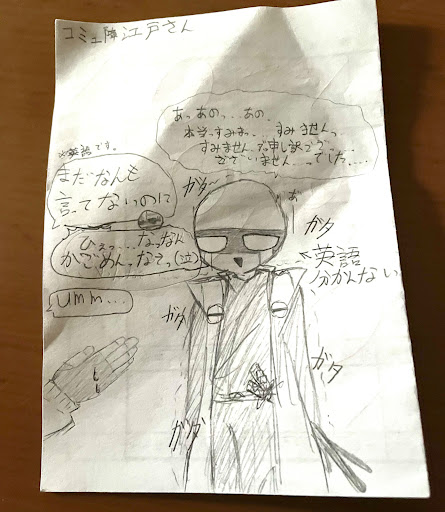 コミュ障江戸さん
あっあの...あの、
本当っすみま...すみませんっ
すみません、申し訳ござっ...
ございません...でした....
※英語です。
まだなんも
言ってないのに
ひぇっ...なっなん
かごめんっなさっ(泣)
umm...
ガタ
ガタ
←英語
分かんない
ガタ
ガタ
ガタ